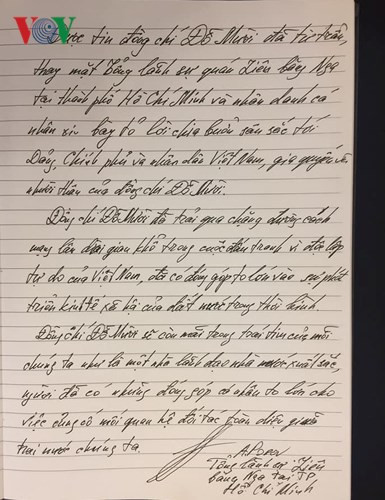 VOV
Được tin đồng chí Đỗ Mười đã từ trần,
thay mặt Tổng lãnh sự quán Liên bang Nga
tại thành phố Hồ Chí Minh và nhân danh cá
nhân xin bày tỏ lời chia buồn sâu sắc tới
Đảng, Chính phủ và nhân dân Việt Nam, gia quyến và
người thân của đồng chí Đỗ Mười.
Đồng chí Đỗ Mười đã trải qua chặng đường cách
mạng lâu dài gian khổ trong cuộc đấu tranh vì độc lập
tự do của Việt Nam, đã có đóng góp to lớn vào sự phát
triển kinh tế xã hội của đất nước trong thời bình.
Đồng chí Đỗ Mười sẽ còn mãi trong trái tim của mỗi
chúng ta như là một nhà lãnh đạo nhà nước xuất sắc,
người đã có những đóng góp cá nhân to lớn cho
việc củng cố mối quan hệ đối tác toàn diện giữa
hai nước chúng ta.
A. Popov
Tổng lãnh sự Liên
bang Nga tại TP
Hồ Chí Minh